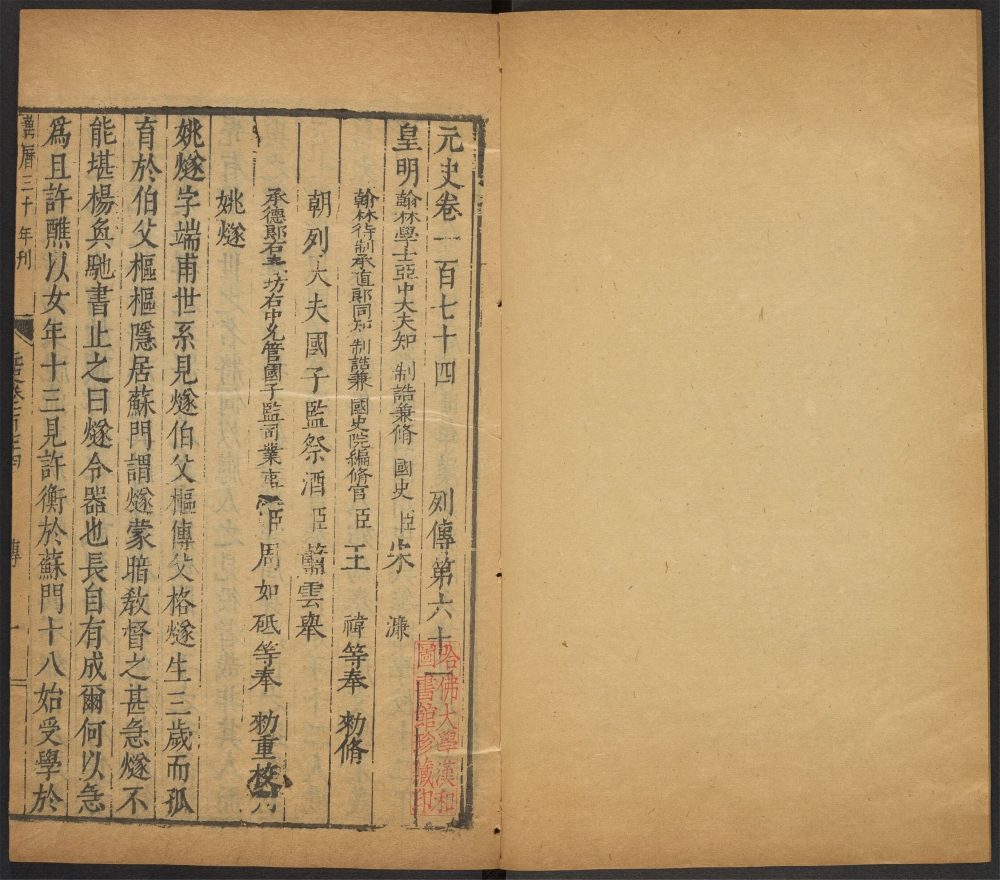 元史卷一百七十四 列傳第六十一
皇明翰林學士亞中大夫知 制誥兼脩 國史 臣 宋 濂
翰林待制承直郎同知 制誥兼 國史院編脩官 臣 王 禕 等奉 勑脩
朝列大夫國子監祭酒 臣 蕭雲舉
承德郎右 坊右中允管國子監司業事 臣 周如砥 等奉 勑重
姚燧
姚燧字端甫世系見燧伯父樞傳父格燧生三歲而孤
育於伯父樞樞隱居蘇門謂燧蒙暗敎督之甚急燧不
能堪楊奐馳書止之曰燧令器也長自有成爾何以急
爲且許醮以女年十三見許衡於蘇門十八始受學於
萬曆三十 年刊
元史卷一百七十四
傳
一
哈佛大學漢和
圖書館珍藏印